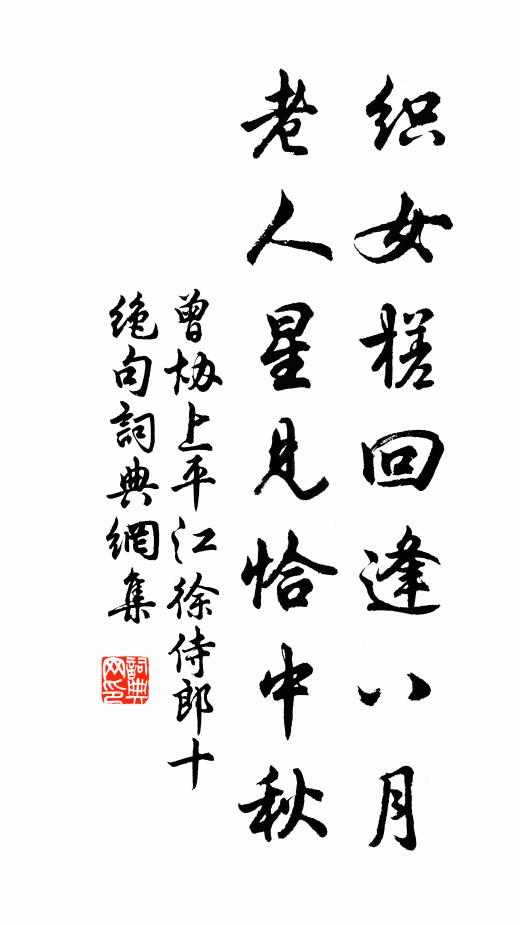 织女槎回逢八月
老人星见恰中秋
曾协上平江徐侍郎十
绝句詞典網集
詞典网印